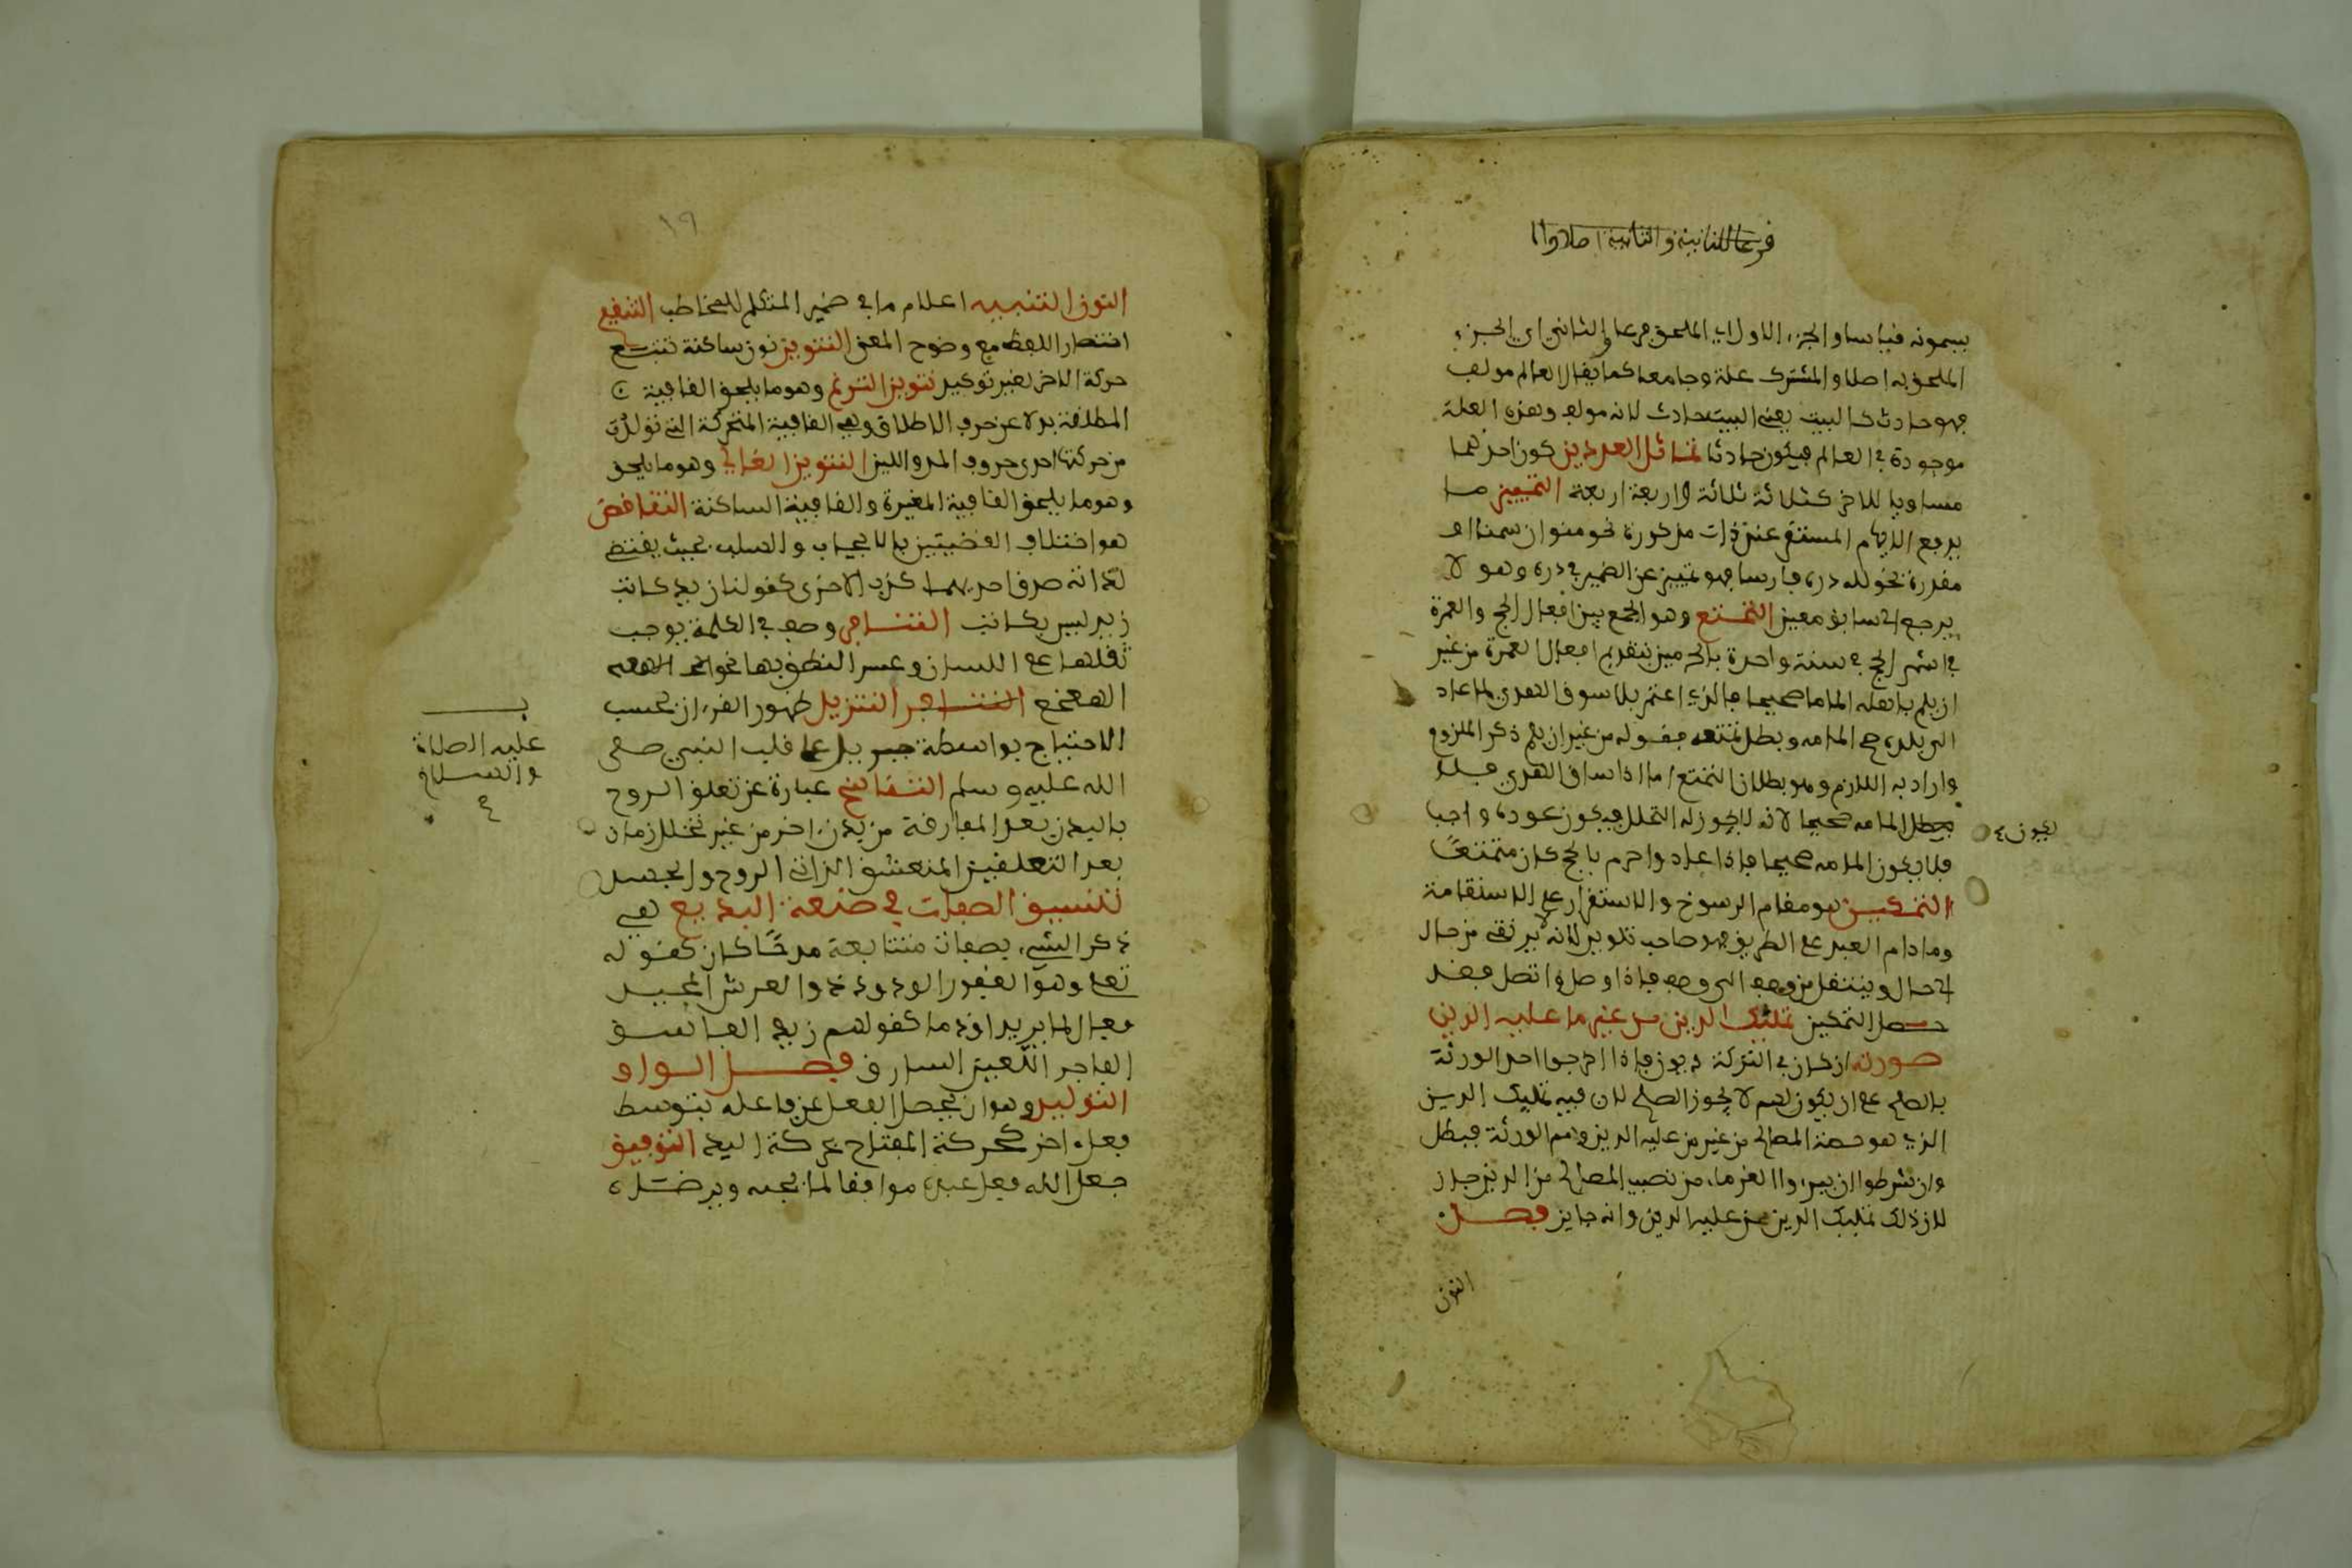 فرعا للثانية والثانية اصلا والا
يسمونه قياسا والجزء الاول اي الملحق فرعا والثاني اي الجزء
الملحق به اصلا والمشترك علة وجامعا كما يقال العالم مولف
فهو حادث كالبيت يعني البيت حادث لانه مولف وهذه العلة
موجودة في العالم فيكون حادثا تماثل العددين كون احدهما
مساويا للاخر كثلاثة ثلاثة واربعة اربعة التمييز ما
يرفع الابهام المستقر عن ذات مذكورة نحو منوان سمنا او
مقدرة نحو لله دره فارسا فهو تمييز عن الضمير في دره وهو لا
يرجع الى سابق معين التمتع وهو الجمع بين افعال الحج والعمرة
في اشهر الحج في سنة واحدة باحرامين بتقديم افعال العمرة من غير
ان يلم باهله الماما صحيحا فالذي اعتمر بلا سوق الهدي لما عاد
الى بلده صح المامه وبطل تمتعه فقوله من غير ان يلم ذكر الملزوم
واراد به اللازم وهو بطلان التمتع اما اذا ساق الهدي فلا
يبطل المامه صحيحا لانه لا يجوز له التحلل فيكون عوده واجبا
يكون
فلا يكون المامه صحيحا فاذا عاد واحرم بالحج كان متمتعا
التمكين هو مقام الرسوخ والاستقرار على الاستقامة
وما دام العبد على الطريق فهو صاحب تلوين لانه يرتقي من حال
الى حال وينتقل من وصف الى وصف فاذا وصل واتصل فقد
حصل التمكين تمليك الدين من غير ما عليه الدين
صورته ان كان في التركة ديون فاذا اخرجوا احد الورثة
بالصلح على ان يكون لهم لا يجوز الصلح لان فيه تمليك الدين
الذي هو حصة المصالح من غير من عليه الدين وهم الورثة فبطل
وان شرطوا ان يبروا الغرماء من نصيب المصالح من الدين جاز
لان ذلك تمليك الدين ممن عليه الدين وانه جايز فصل
النون
١٩
النون التنبيه اعلام ما في ضمير المتكلم للمخاطب التنقيح
اختصار اللفظ مع وضوح المعنى التنوين نون ساكنة تتبع
حركة الاخر لغير توكيد تنوين الترنم وهو ما يلحق القافية
المطلقة بدلا عن حرف الاطلاق وهي القافية المتحركة التي تولدت
من حركتها احدى حروف المد واللين التنوين الغالي وهو ما يلحق
وهو ما يلحق القافية المغيرة والقافية الساكنة التناقض
هو اختلاف القضيتين بالايجاب والسلب بحيث يقتضي
لذاته صدق احديهما كذب الاخرى كقولنا زيد كاتب
زيد ليس بكاتب التنافر وصف في الكلمة يوجب
ثقلها على اللسان وعسر النطق بها نحو
الهعخع التنافر التنزيل ظهور القرءان بحسب
الاحتياج بواسطة جبريل على قلب النبي صلى
عليه الصلاة
والسلام
الله عليه وسلم التناسخ عبارة عن تعلق الروح
بالبدن بعد المفارقة من بدن اخر من غير تخلل زمان
بعد التعلقين المتعشق الذاتي الروح والجسد
تنسيق الصفات في صنعة البديع هي
ذكر الشيء بصفات متتابعة مدحا كان كقوله
تعالى وهو الغفور الودود ذو العرش المجيد
فعال لما يريد او ذما كقولهم زيد الفاسق
الفاجر اللعين السارق فصل الواو
التوليد وهو ان يحصل الفعل عن فاعله بتوسط
فعل اخر كحركة المفتاح بحركة اليد التوفيق
جعل الله فعل عبده موافقا لما يحبه ويرضاه